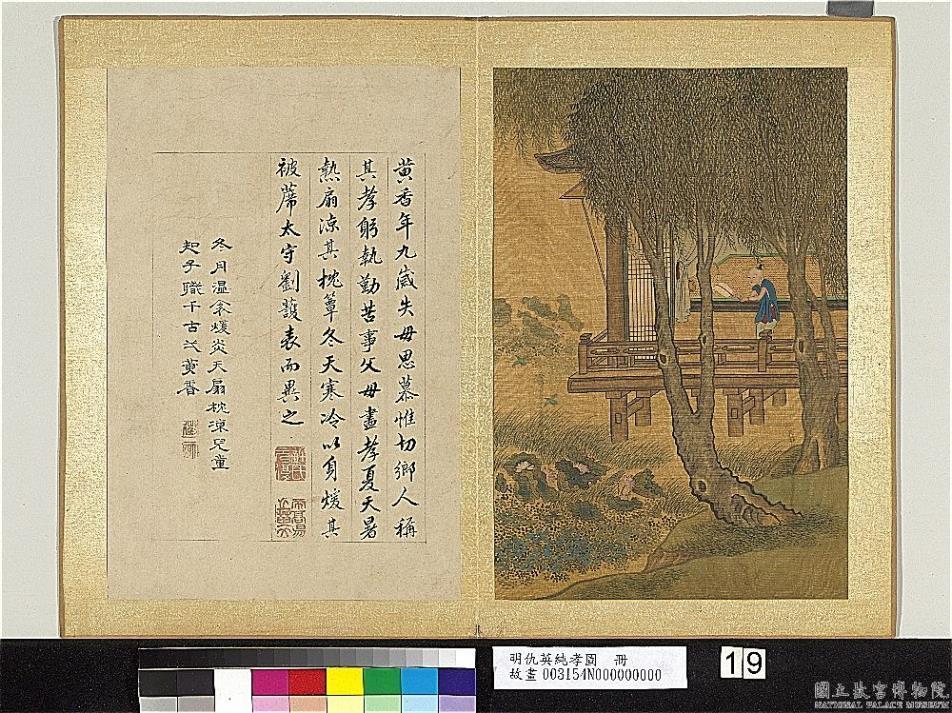 黄香年九歲失母思慕惟切鄉人稱
其孝躬執勤苦事父母盡孝夏天暑
熱扇涼其枕簟冬天寒冷以身煖其
被蓆太守劉護表而異之
冬月溫衾煖炎天扇枕涼兒童
知子職千古一黄香
明仇英純孝圖 冊
故畫003154N000000000
19
國立故宮博物院
NATIONAL PALACE MUSEUM